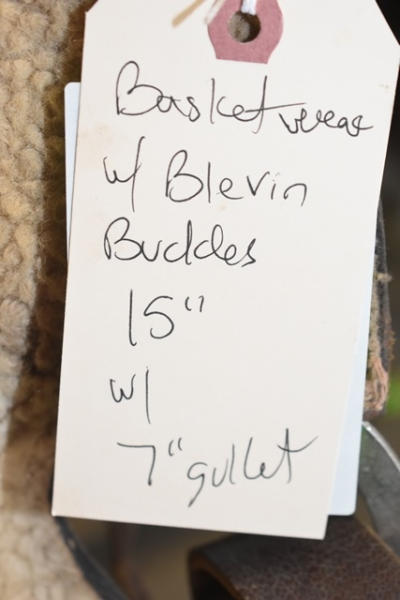 Basket weave
w/ Blevin
Buckles
15"
w/
7" gullet